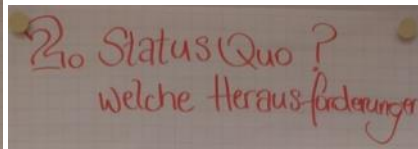 2. Status Quo ?
Welche Herausforderungen